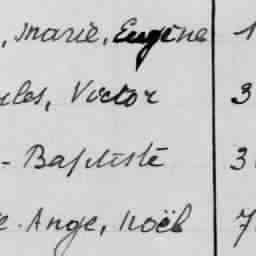 , Marie, Eugène 1
ules, Victor 3
- Baptiste 3
e. Ange, Noël 7